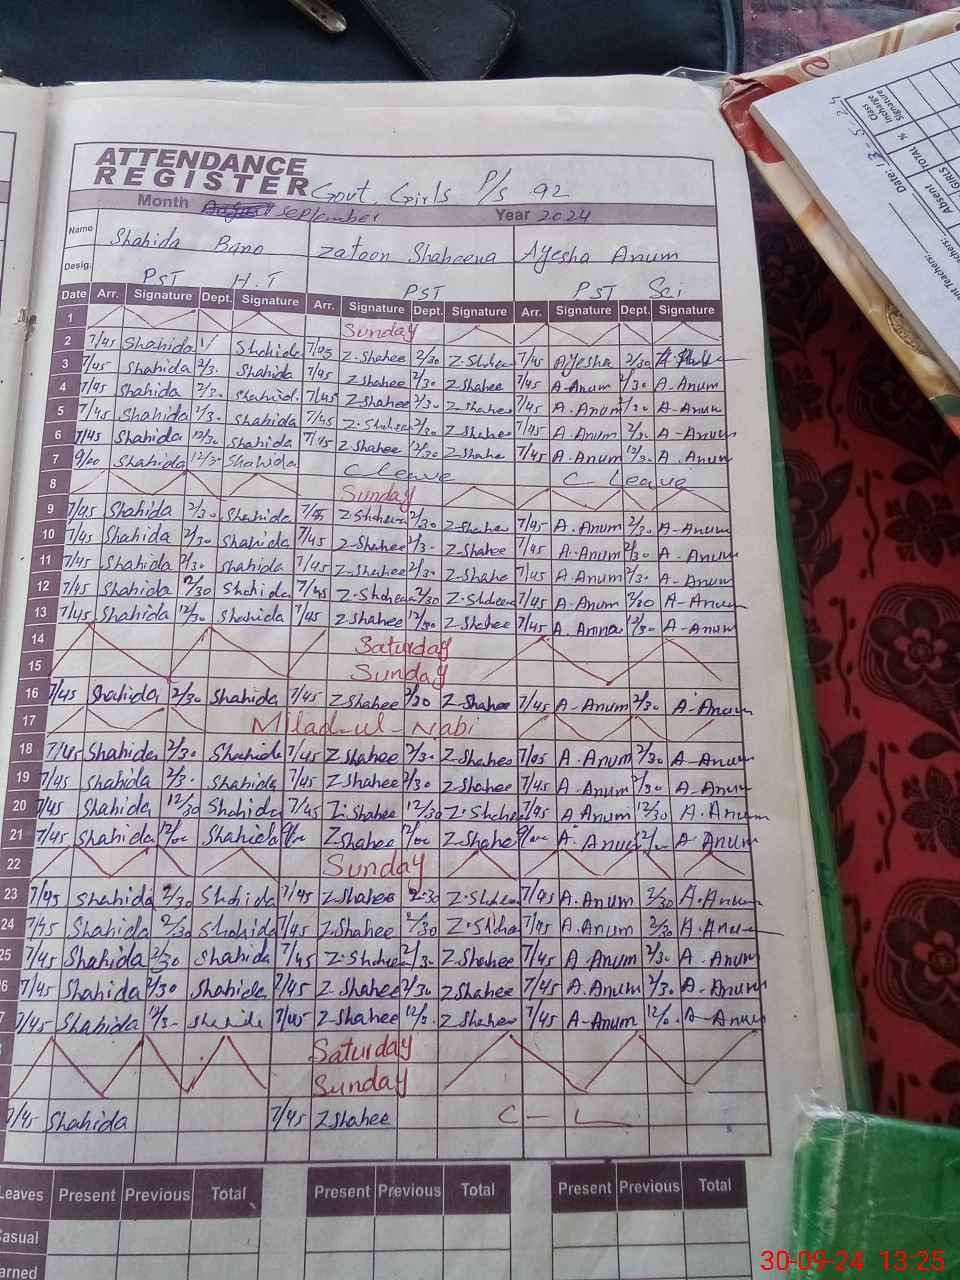 ATTENDANCE
REGISTER Govt. Girls P/S 92
Month September Year 2024
Name Shahida Bano Zatoon Shaheena Ayesha Anum
Desig. PST H.T PST PST Sci
Date Arr. Signature Dept. Signature Arr. Signature Dept. Signature Arr. Signature Dept. Signature
1 Sunday
2 7/45 Shahida Shahida 7/45 Z.Shahee 2/30 Z.Shahee 7/45 Ayesha 2/30
3 7/45 Shahida 2/3. Shahida 7/45 Zshahee 2/30 Zshahee 7/45 A-Anum 2/30 A.Anum
4 7/45 Shahida 2/3. Shahid. 7/45 Zshahee 2/30 Z-shahee 7/45 A.Anum 2/30 A-Anum
5 7/45 Shahida 2/3. Shahida 7/45 Z.Shahee 2/30 Z.Shahee 7/45 A.Anum 2/30 A-Anum
6 7/45 Shahida 12/30 Shahida 7/45 Z.shahee 12/30 Z.Shahe 7/45 A.Anum 12/30 A.Anum
7 9/00 Shahida 12/30 Shahida C Leave C Leave
8 Sunday
9 7/45 Shahida 2/30 Shahida 7/45 Z.Shaheen 2/30 Z-shahee 7/45 A.Anum 2/30 A-Anum
10 7/45 Shahida 2/30 Shahida 7/45 Z-Shahee 2/3. Z-Shahee 7/45 A.Anum 2/30 A-Anum
11 7/45 Shahida 2/30 Shahida 7/45 Z-Shahee 2/3. Z-Shahe 7/45 A.Anum 2/3. A-Anum
12 7/45 Shahida 2/30 Shahida 7/45 Z-Shaheen 2/30 Z.Shaheen 7/45 A-Anum 2/30 A-Anum
13 7/45 Shahida 12/30 Shahida 7/45 Zshahee 12/30 Z-Shahee 7/45 A.Anna 12/30 A-Anum
14 Saturday
15 Sunday
16 7/45 Shahida 2/30 Shahida 7/45 Z-Shahee 2/30 Z-Shahee 7/45 A-Anum 2/30 A-Anum
17 Milad-ul-Nabi
18 7/45 Shahida 2/30 Shahida 7/45 Z-Shahee 2/30 Z-Shahee 7/45 A.Anum 2/30 A-Anum
19 7/45 Shahida 2/3. Shahida 7/45 Z-Shahee 2/30 Z-Shahee 7/45 A.Anum 2/30 A-Anum
20 7/45 Shahida 12/30 Shahida 7/45 Z.Shahee 12/30 Z.Shahee 7/45 A.Anum 12/30 A.Anum
21 7/45 Shahida 12/00 Shahida 9/00 Zshahee 12/00 Z-Shahee 9/00 A.Anum 12/ A-Anum
22 Sunday
23 7/45 Shahida 2/30 Shahida 7/45 Zshahee 2.30 Z.Shaheen 7/45 A.Anum 2/30 A.Anum
24 7/45 Shahida 2/30 Shahida 7/45 Z.Shahee 2/30 Z.Shahe 7/45 A.Anum 2/30 A.Anum
25 7/45 Shahida 2/30 Shahida 7/45 Z.Shahee 2/3. Z.Shahee 7/45 A.Anum 2/30 A.Anum
6 7/45 Shahida 2/30 Shahida 7/45 Z-Shahee 2/30 Zshahee 7/45 A.Anum 2/30. A-Anum
7 7/45 Shahida 12/3. Shahida 7/45 Z-Shahee 12/3. Z-Shahee 7/45 A-Anum 12/ A-Anum
Saturday
Sunday
7/45 Shahida 7/45 Zshahee C - L
Leaves Present Previous Total Present Previous Total Present Previous Total
Casual
arned
Class Incharge Signature
%
TOTAL
GIRLS
Date: 13-5-24
Absent
nt Teachers:
30-09-24 13:25